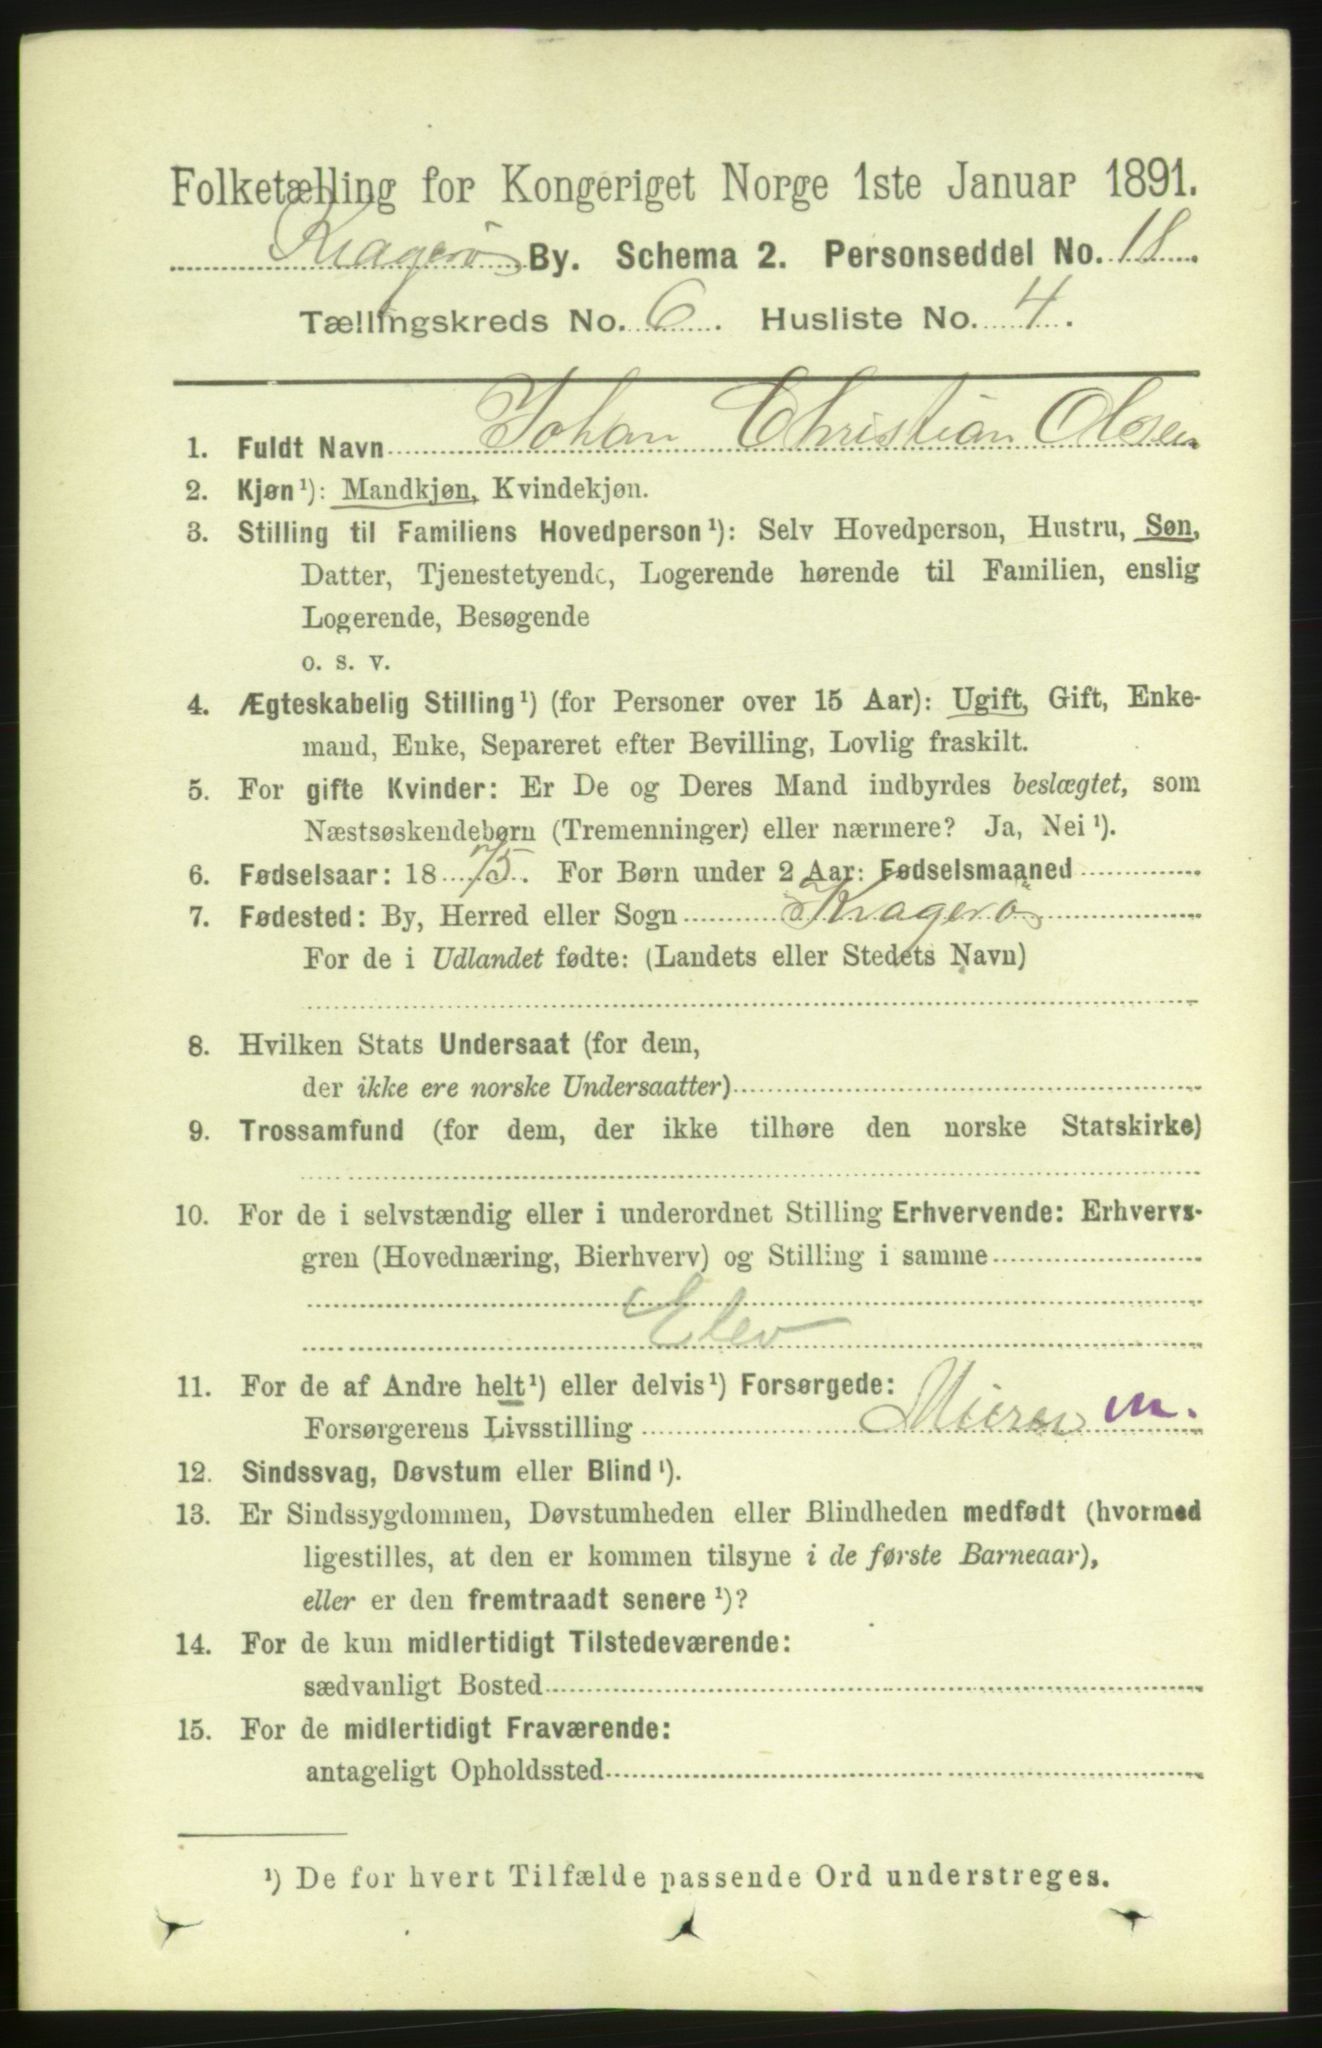 Folketælling for Kongeriget Norge 1ste Januar 1891.
Kragerø By. Schema 2. Personseddel No. 18.
Tællingskreds No. 6. Husliste No. 4.
1. Fuldt Navn Johan Christian Olsen
2. Kjøn¹): Mandkjøn, Kvindekjøn.
3. Stilling til Familiens Hovedperson¹): Selv Hovedperson, Hustru, Søn,
Datter, Tjenestetyende, Logerende hørende til Familien, enslig
Logerende, Besøgende
o. s. v.
4. Ægteskabelig Stilling¹) (for Personer over 15 Aar): Ugift, Gift, Enke-
mand, Enke, Separeret efter Bevilling, Lovlig fraskilt.
5. For gifte Kvinder: Er De og Deres Mand indbyrdes beslægtet, som
Næstsøskendebørn (Tremenninger) eller nærmere? Ja, Nei¹).
6. Fødselsaar: 1875. For Børn under 2 Aar: Fødselsmaaned
7. Fødested: By, Herred eller Sogn Kragerö
For de i Udlandet fødte: (Landets eller Stedets Navn)
8. Hvilken Stats Undersaat (for dem,
der ikke ere norske Undersaatter)
9. Trossamfund (for dem, der ikke tilhøre den norske Statskirke)
10. For de i selvstændig eller i underordnet Stilling Erhvervende: Erhvervs-
gren (Hovednæring, Bierhverv) og Stilling i samme
Elev
11. For de af Andre helt¹) eller delvis¹) Forsørgede:
Forsørgerens Livsstilling m.
12. Sindssvag, Døvstum eller Blind¹).
13. Er Sindssygdommen, Døvstumheden eller Blindheden medfødt (hvormed
ligestilles, at den er kommen tilsyne i de første Barneaar),
eller er den fremtraadt senere¹)?
14. For de kun midlertidigt Tilstedeværende:
sædvanligt Bosted
15. For de midlertidigt Fraværende:
antageligt Opholdssted
¹) De for hvert Tilfælde passende Ord understreges.